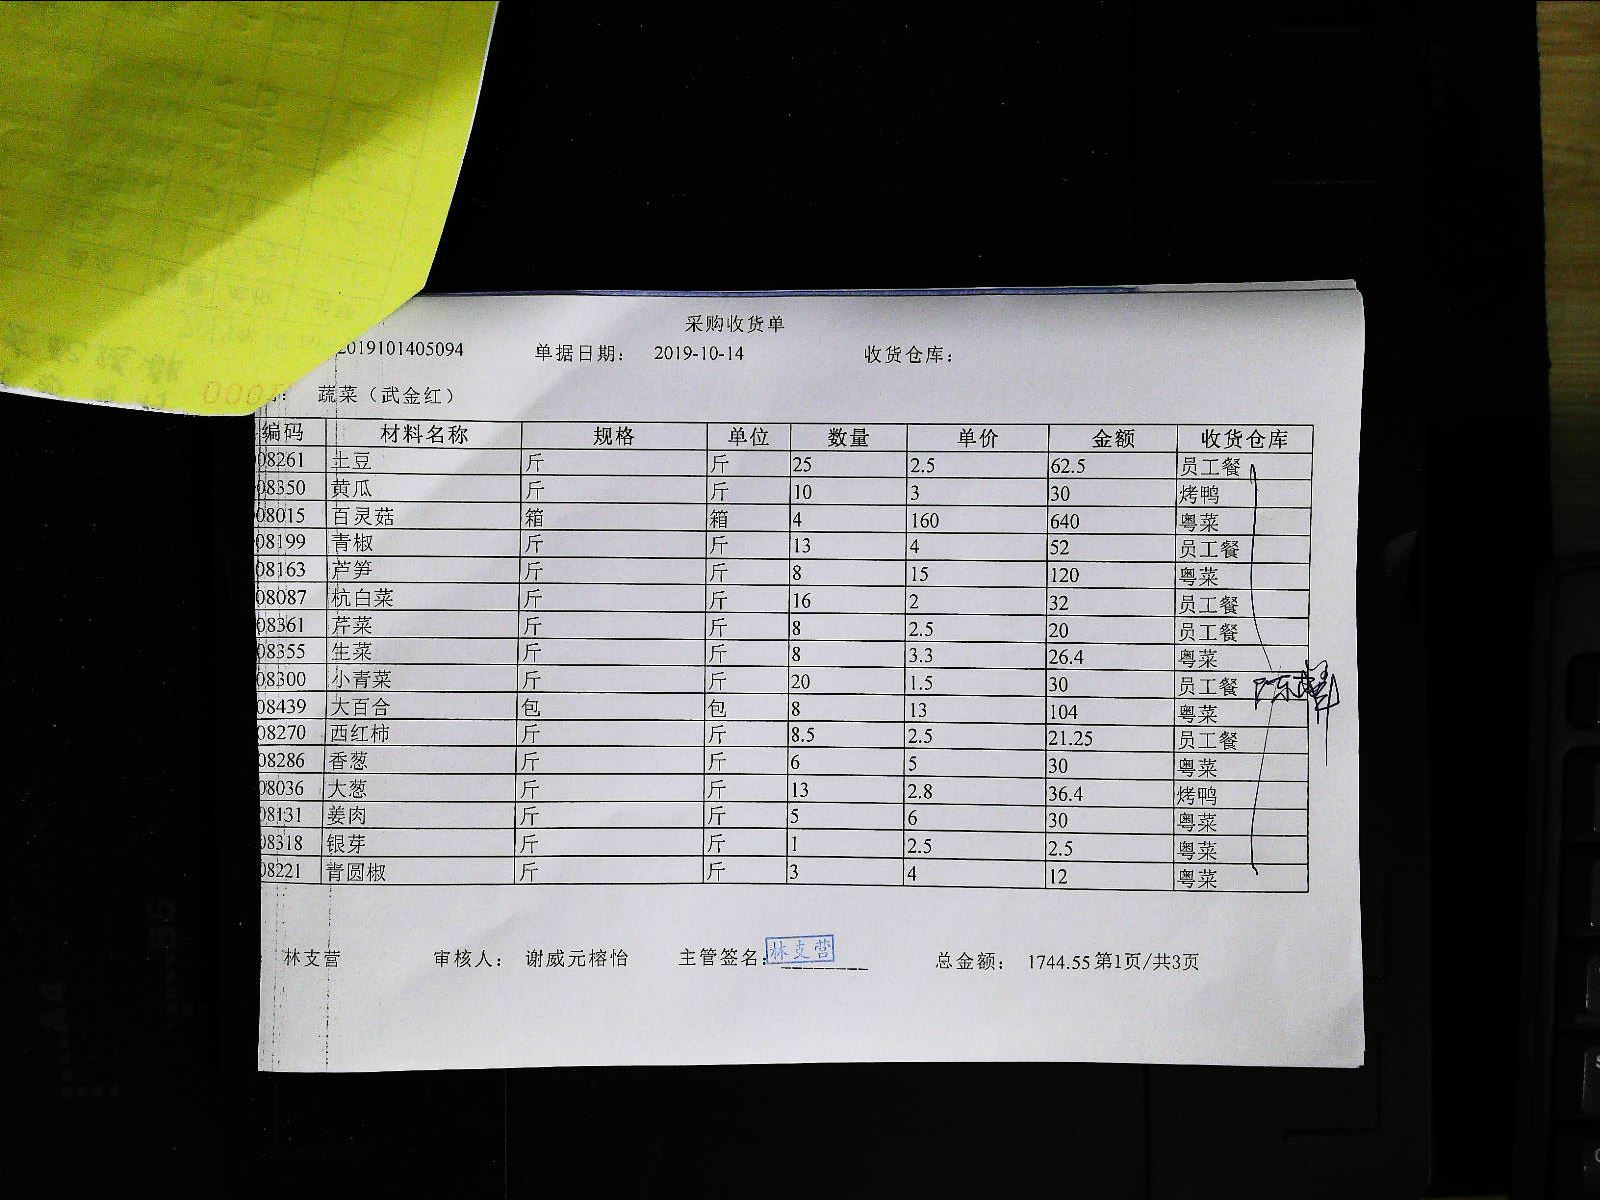 采购收货单
2019101405094 单据日期： 2019-10-14 收货仓库：
蔬菜（武金红）
编码 材料名称 规格 单位 数量 单价 金额 收货仓库
08261 土豆 斤 斤 25 2.5 62.5 员工餐
08350 黄瓜 斤 斤 10 3 30 烤鸭
08015 百灵菇 箱 箱 4 160 640 粤菜
08199 青椒 斤 斤 13 4 52 员工餐
08163 芦笋 斤 斤 8 15 120 粤菜
08087 杭白菜 斤 斤 16 2 32 员工餐
08361 芹菜 斤 斤 8 2.5 20 员工餐
08355 生菜 斤 斤 8 3.3 26.4 粤菜
08300 小青菜 斤 斤 20 1.5 30 员工餐
08439 大百合 包 包 8 13 104 粤菜
08270 西红柿 斤 斤 8.5 2.5 21.25 员工餐
08286 香葱 斤 斤 6 5 30 粤菜
08036 大葱 斤 斤 13 2.8 36.4 烤鸭
08131 姜肉 斤 斤 5 6 30 粤菜
08318 银芽 斤 斤 1 2.5 2.5 粤菜
08221 青圆椒 斤 斤 3 4 12 粤菜
林支营 审核人： 谢威元榕怡 主管签名： 林支营 总金额： 1744.55 第1页/共3页